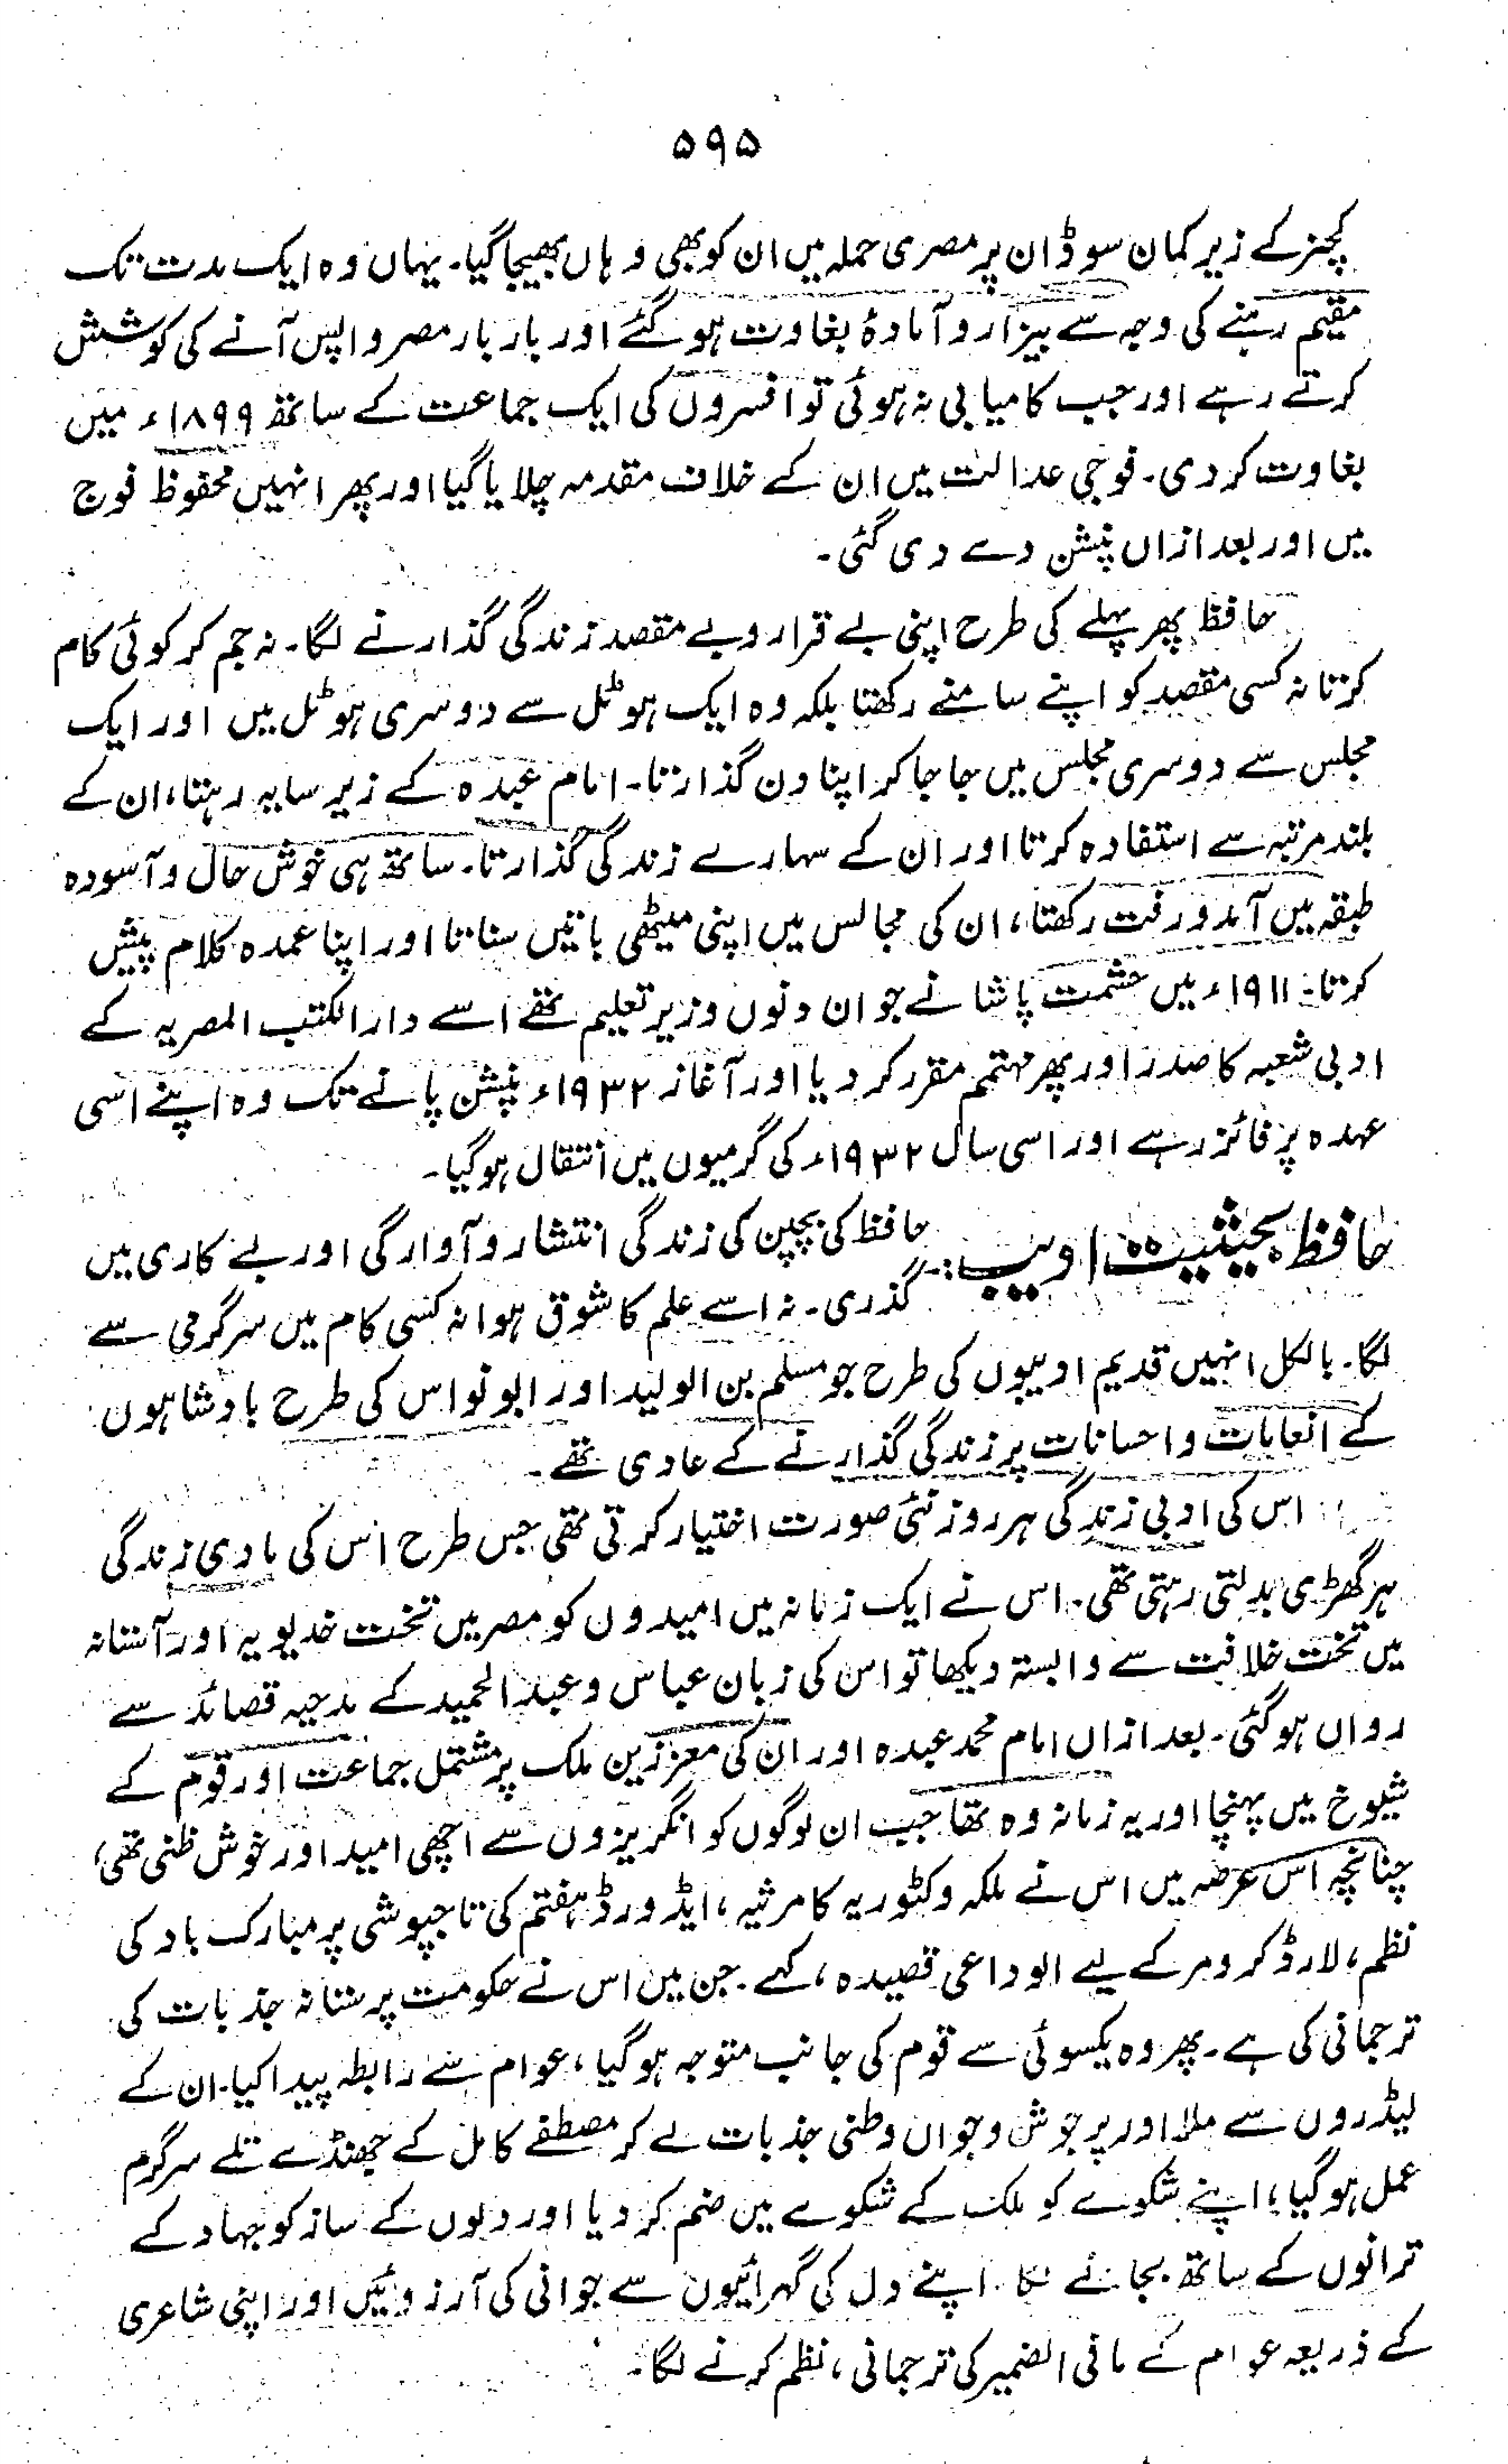 ۵۹۵
کچنر کے زیر کمان سوڈان پر مصری حملہ میں ان کو بھی وہاں بھیجا گیا۔ یہاں وہ ایک مدت تک
مقیم رہنے کی وجہ سے بیزار و آمادۂ بغاوت ہو گئے اور بار بار مصر واپس آنے کی کوشش
کرتے رہے اور جب کامیابی نہ ہوئی تو افسروں کی ایک جماعت کے ساتھ ۱۸۹۹ء میں
بغاوت کر دی۔ فوجی عدالت میں ان کے خلاف مقدمہ چلایا گیا اور پھر انہیں محفوظ فوج
میں اور بعد ازاں پنشن دے دی گئی۔
حافظ پھر پہلے کی طرح اپنی بے قرار و بے مقصد زندگی گذارنے لگا۔ نہ جم کر کوئی کام
کرتا نہ کسی مقصد کو اپنے سامنے رکھتا بلکہ وہ ایک ہوٹل سے دوسری ہوٹل میں اور ایک
مجلس سے دوسری مجلس میں جا جا کر اپنا دن گذارتا۔ امام عبدہ کے زیر سایہ رہتا، ان کے
بلند مرتبہ سے استفادہ کرتا اور ان کے سہارے زندگی گذارتا۔ ساتھ ہی خوش حال و آسودہ
طبقہ میں آمد و رفت رکھتا، ان کی مجالس میں اپنی میٹھی باتیں سناتا اور اپنا عمدہ کلام پیش
کرتا۔ ۱۹۱۱ء میں حشمت پاشا نے جو ان دنوں وزیر تعلیم تھے اسے دار الکتب المصریہ کے
ادبی شعبہ کا صدر اور پھر مہتمم مقرر کر دیا اور آغاز ۱۹۳۲ء پنشن پانے تک وہ اپنے اسی
عہدہ پر فائز رہے اور اسی سال ۱۹۳۲ء کی گرمیوں میں انتقال ہو گیا۔
حافظ بحیثیت ادیب:۔ حافظ کی بچپن کی زندگی انتشار و آوارگی اور بے کاری میں
گذری۔ نہ اسے علم کا شوق ہوا نہ کسی کام میں سرگرمی سے
لگا۔ بالکل انہیں قدیم ادیبوں کی طرح جو مسلم بن الولید اور ابو نواس کی طرح بادشاہوں
کے انعامات و احسانات پر زندگی گذارنے کے عادی تھے۔
اس کی ادبی زندگی ہر روز نئی صورت اختیار کرتی تھی جس طرح اس کی مادی زندگی
ہر گھڑی بدلتی رہتی تھی۔ اس نے ایک زمانہ میں امیدوں کو مصر میں تخت خدیویہ اور آستانہ
میں تخت خلافت سے وابستہ دیکھا تو اس کی زبان عباس و عبد الحمید کے مدحیہ قصائد سے
رواں ہو گئی۔ بعد ازاں امام محمد عبدہ اور ان کی معززین ملک پر مشتمل جماعت اور قوم کے
شیوخ میں پہنچا اور یہ زمانہ وہ تھا جب ان لوگوں کو انگریزوں سے اچھی امید اور خوش ظنی تھی؛
چنانچہ اس عرصہ میں اس نے ملکہ وکٹوریہ کا مرثیہ، ایڈورڈ ہفتم کی تاجپوشی پر مبارک باد کی
نظم، لارڈ کرومر کے لیے الوداعی قصیدہ، کہے۔ جن میں اس نے حکومت پرستانہ جذبات کی
ترجمانی کی ہے۔ پھر وہ یکسوئی سے قوم کی جانب متوجہ ہو گیا، عوام سے رابطہ پیدا کیا۔ ان کے
لیڈروں سے ملا اور پرجوش و جواں وطنی جذبات لے کر مصطفے کامل کے جھنڈے تلے سرگرم
عمل ہو گیا؛ اپنے شکوے کو ملک کے شکوے میں ضم کر دیا اور دلوں کے ساز کو جہاد کے
ترانوں کے ساتھ بجانے لگا۔ اپنے دل کی گہرائیوں سے جوانی کی آرزوئیں اور اپنی شاعری
کے ذریعہ عوام کے مافی الضمیر کی ترجمانی، نظم کرنے لگا۔